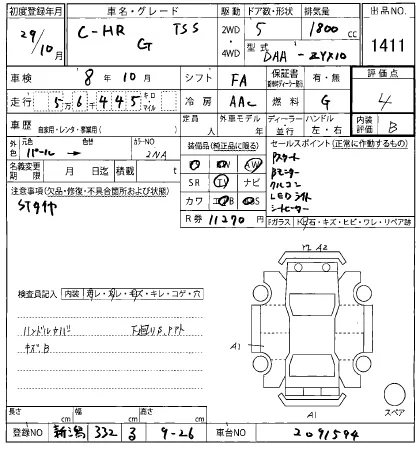 初度登録年月 車名・グレード 駆動 ドア数・形状 排気量 出品NO.
29/10月 C-HR TSS G 2WD 4WD 5 1800 cc 1411
型式 DAA-ZYX10
車検 8年10月 シフト FA 保証書 有・無 評価点
走行 5万6千445 キロ マイル 冷房 AAC 燃料 G 4
車歴 自家用・レンタ・事業用( ) 定員 人 外車モデル 年 ディーラー 並行 ハンドル 左・右 内装評価 B
外色 パール → 色替 カラーNO 2NA 装備品(純正品に限る) セールスポイント(正常に作動するもの)
名義変更期限 月 日迄 積載 t AW
SR ナビ
カワ
R券 11270円
Pスタート
Bモニター
クルコン
LEDライト
シートヒーター
注意事項(欠品・修復・不具合箇所および状態)
STタイヤ
Fガラス 石・キズ・ヒビ・ワレ・リペア跡
A2
検査員記入 内装 ・キレ・コゲ・穴
ハンドルカバー
キズB
A1
A1
スペア
長さ cm 幅 cm 高さ cm
登録NO 新潟 332 る 9-26 車台NO 2091594